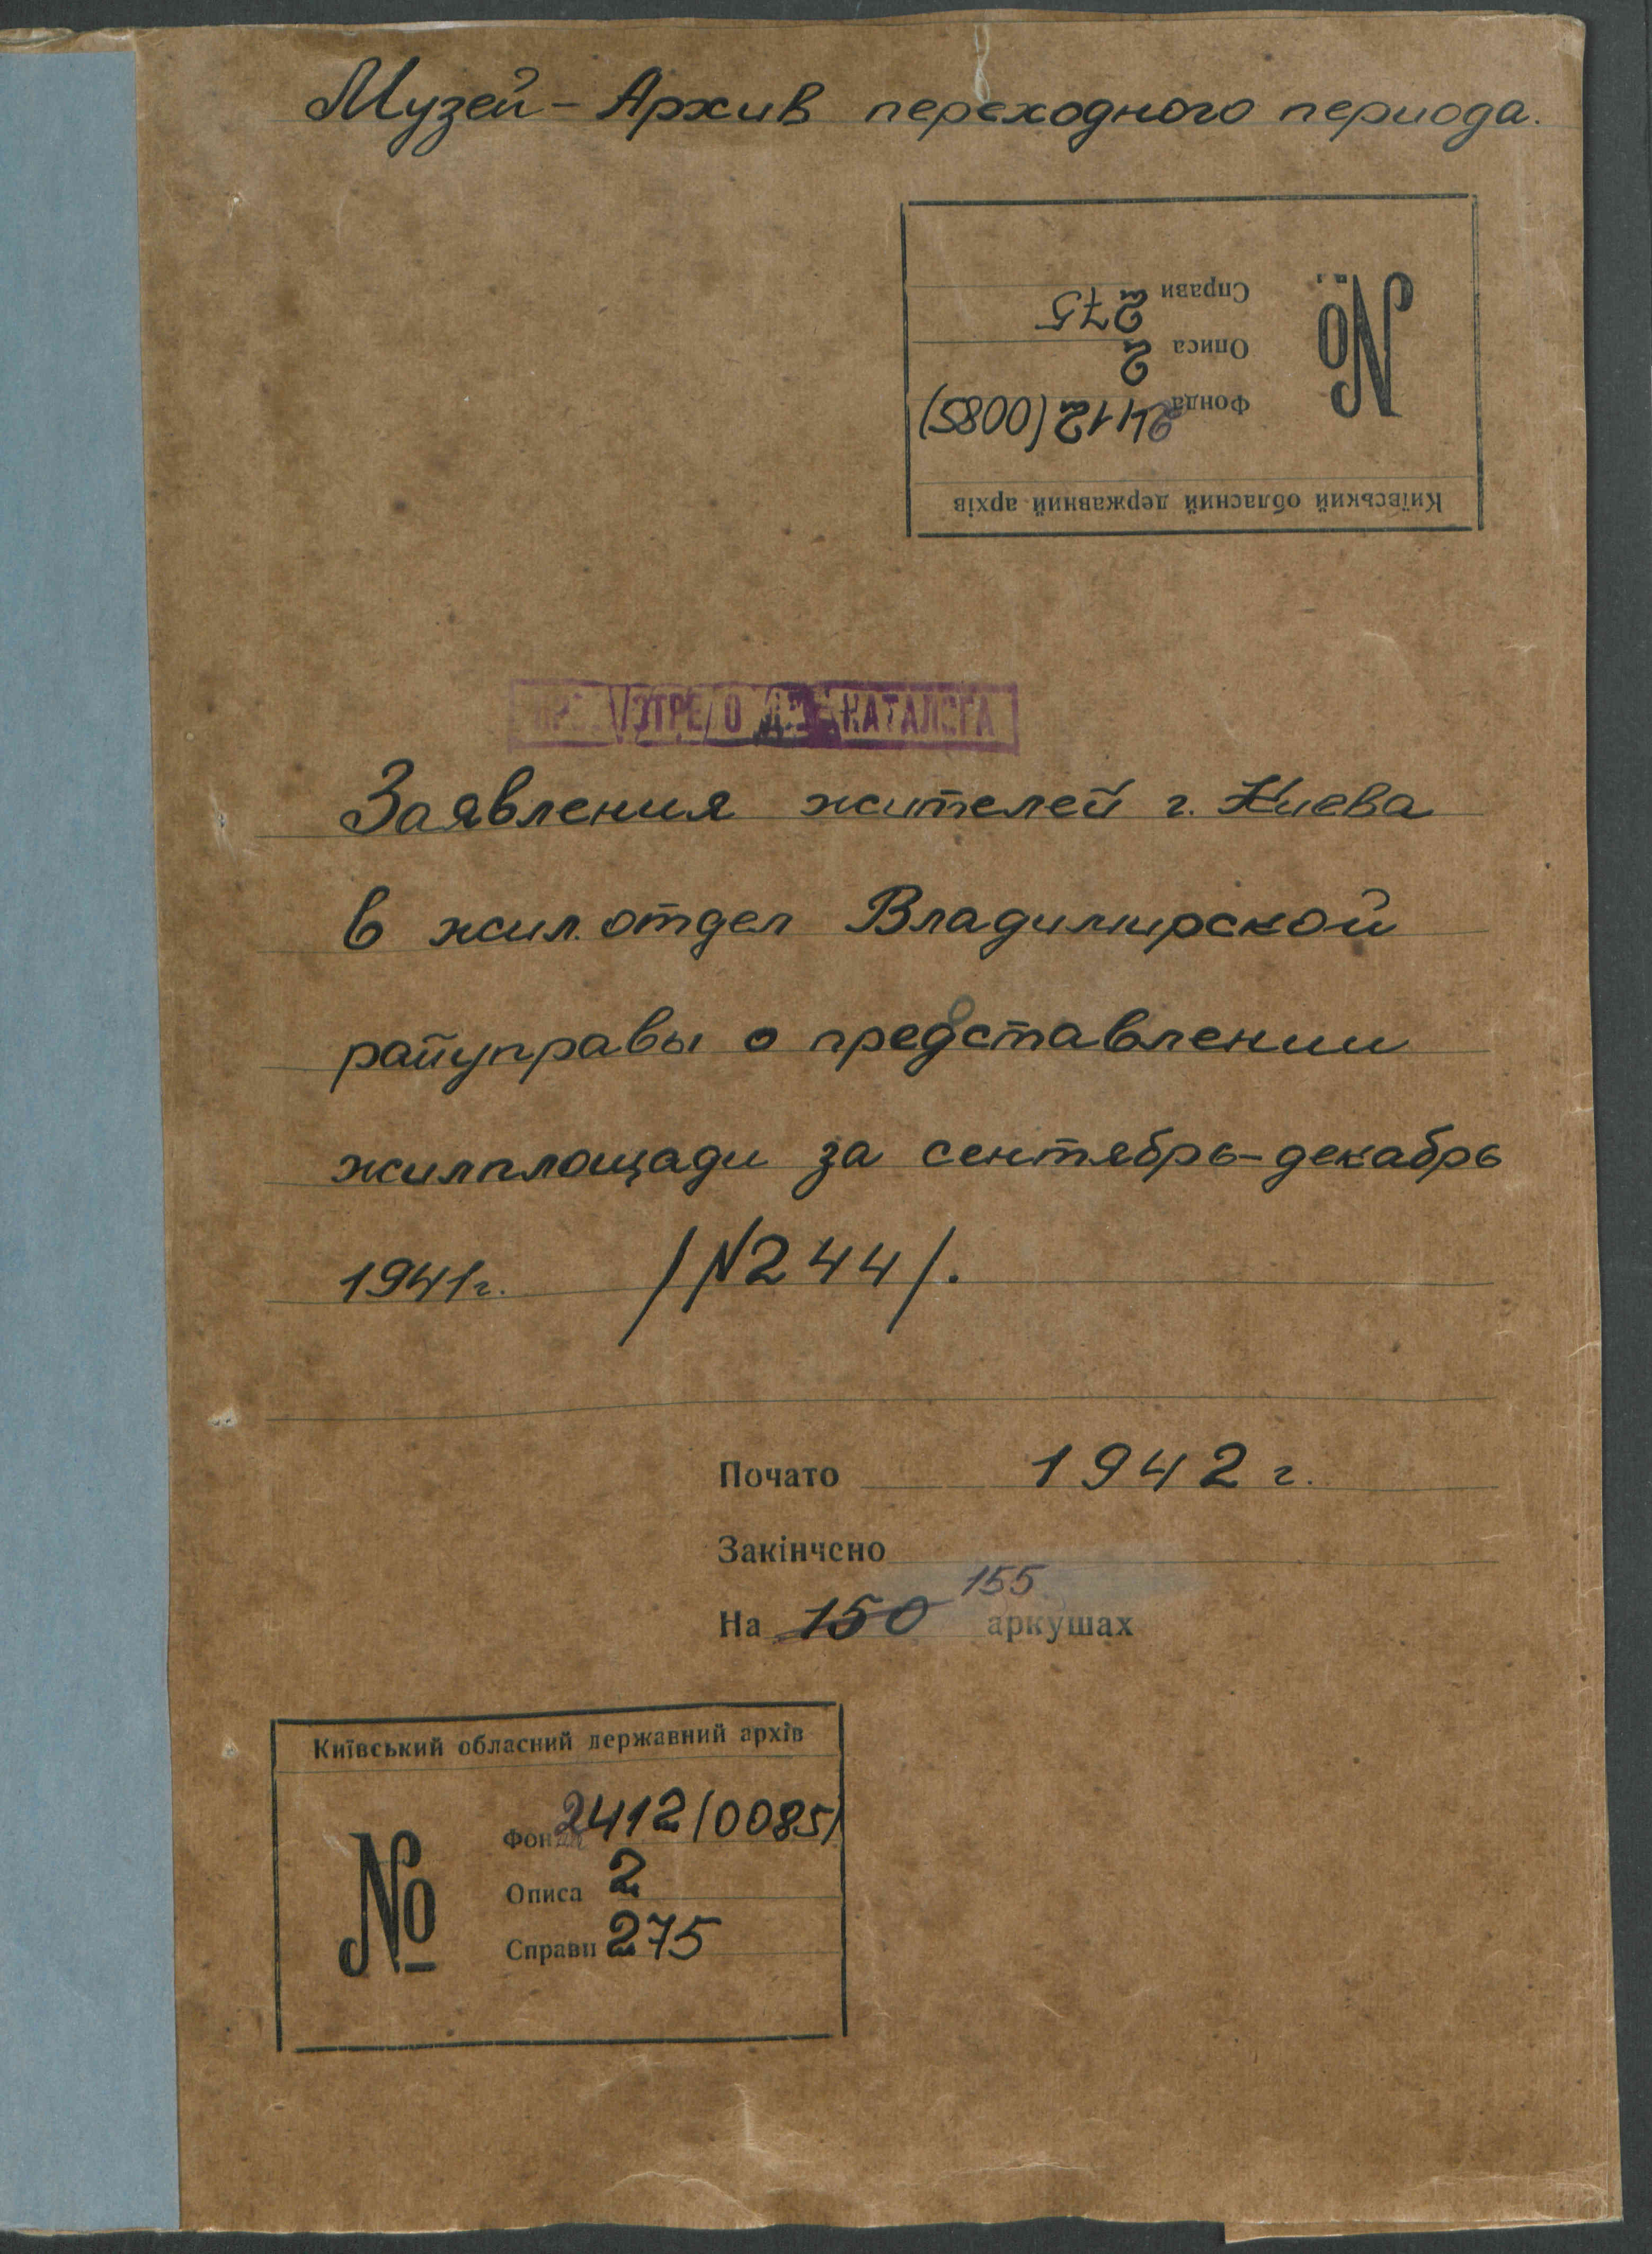 Музей-Архив переходного периода.
Київський обласний державний архів
№
Фонда 2412(0085)
Описа 2
Справи 275
КАТАЛОГА
Заявления жителей г. Киева
в жил. отдел Владимирской
райуправы о представлении
жилплощади за сентябрь-декабрь
1941г. /N244/.
Почато 1942 г.
Закінчено
155
На 150 аркушах
Київський обласний державний архів
№
Фонда 2412/0085/
Описа 2
Справи 275